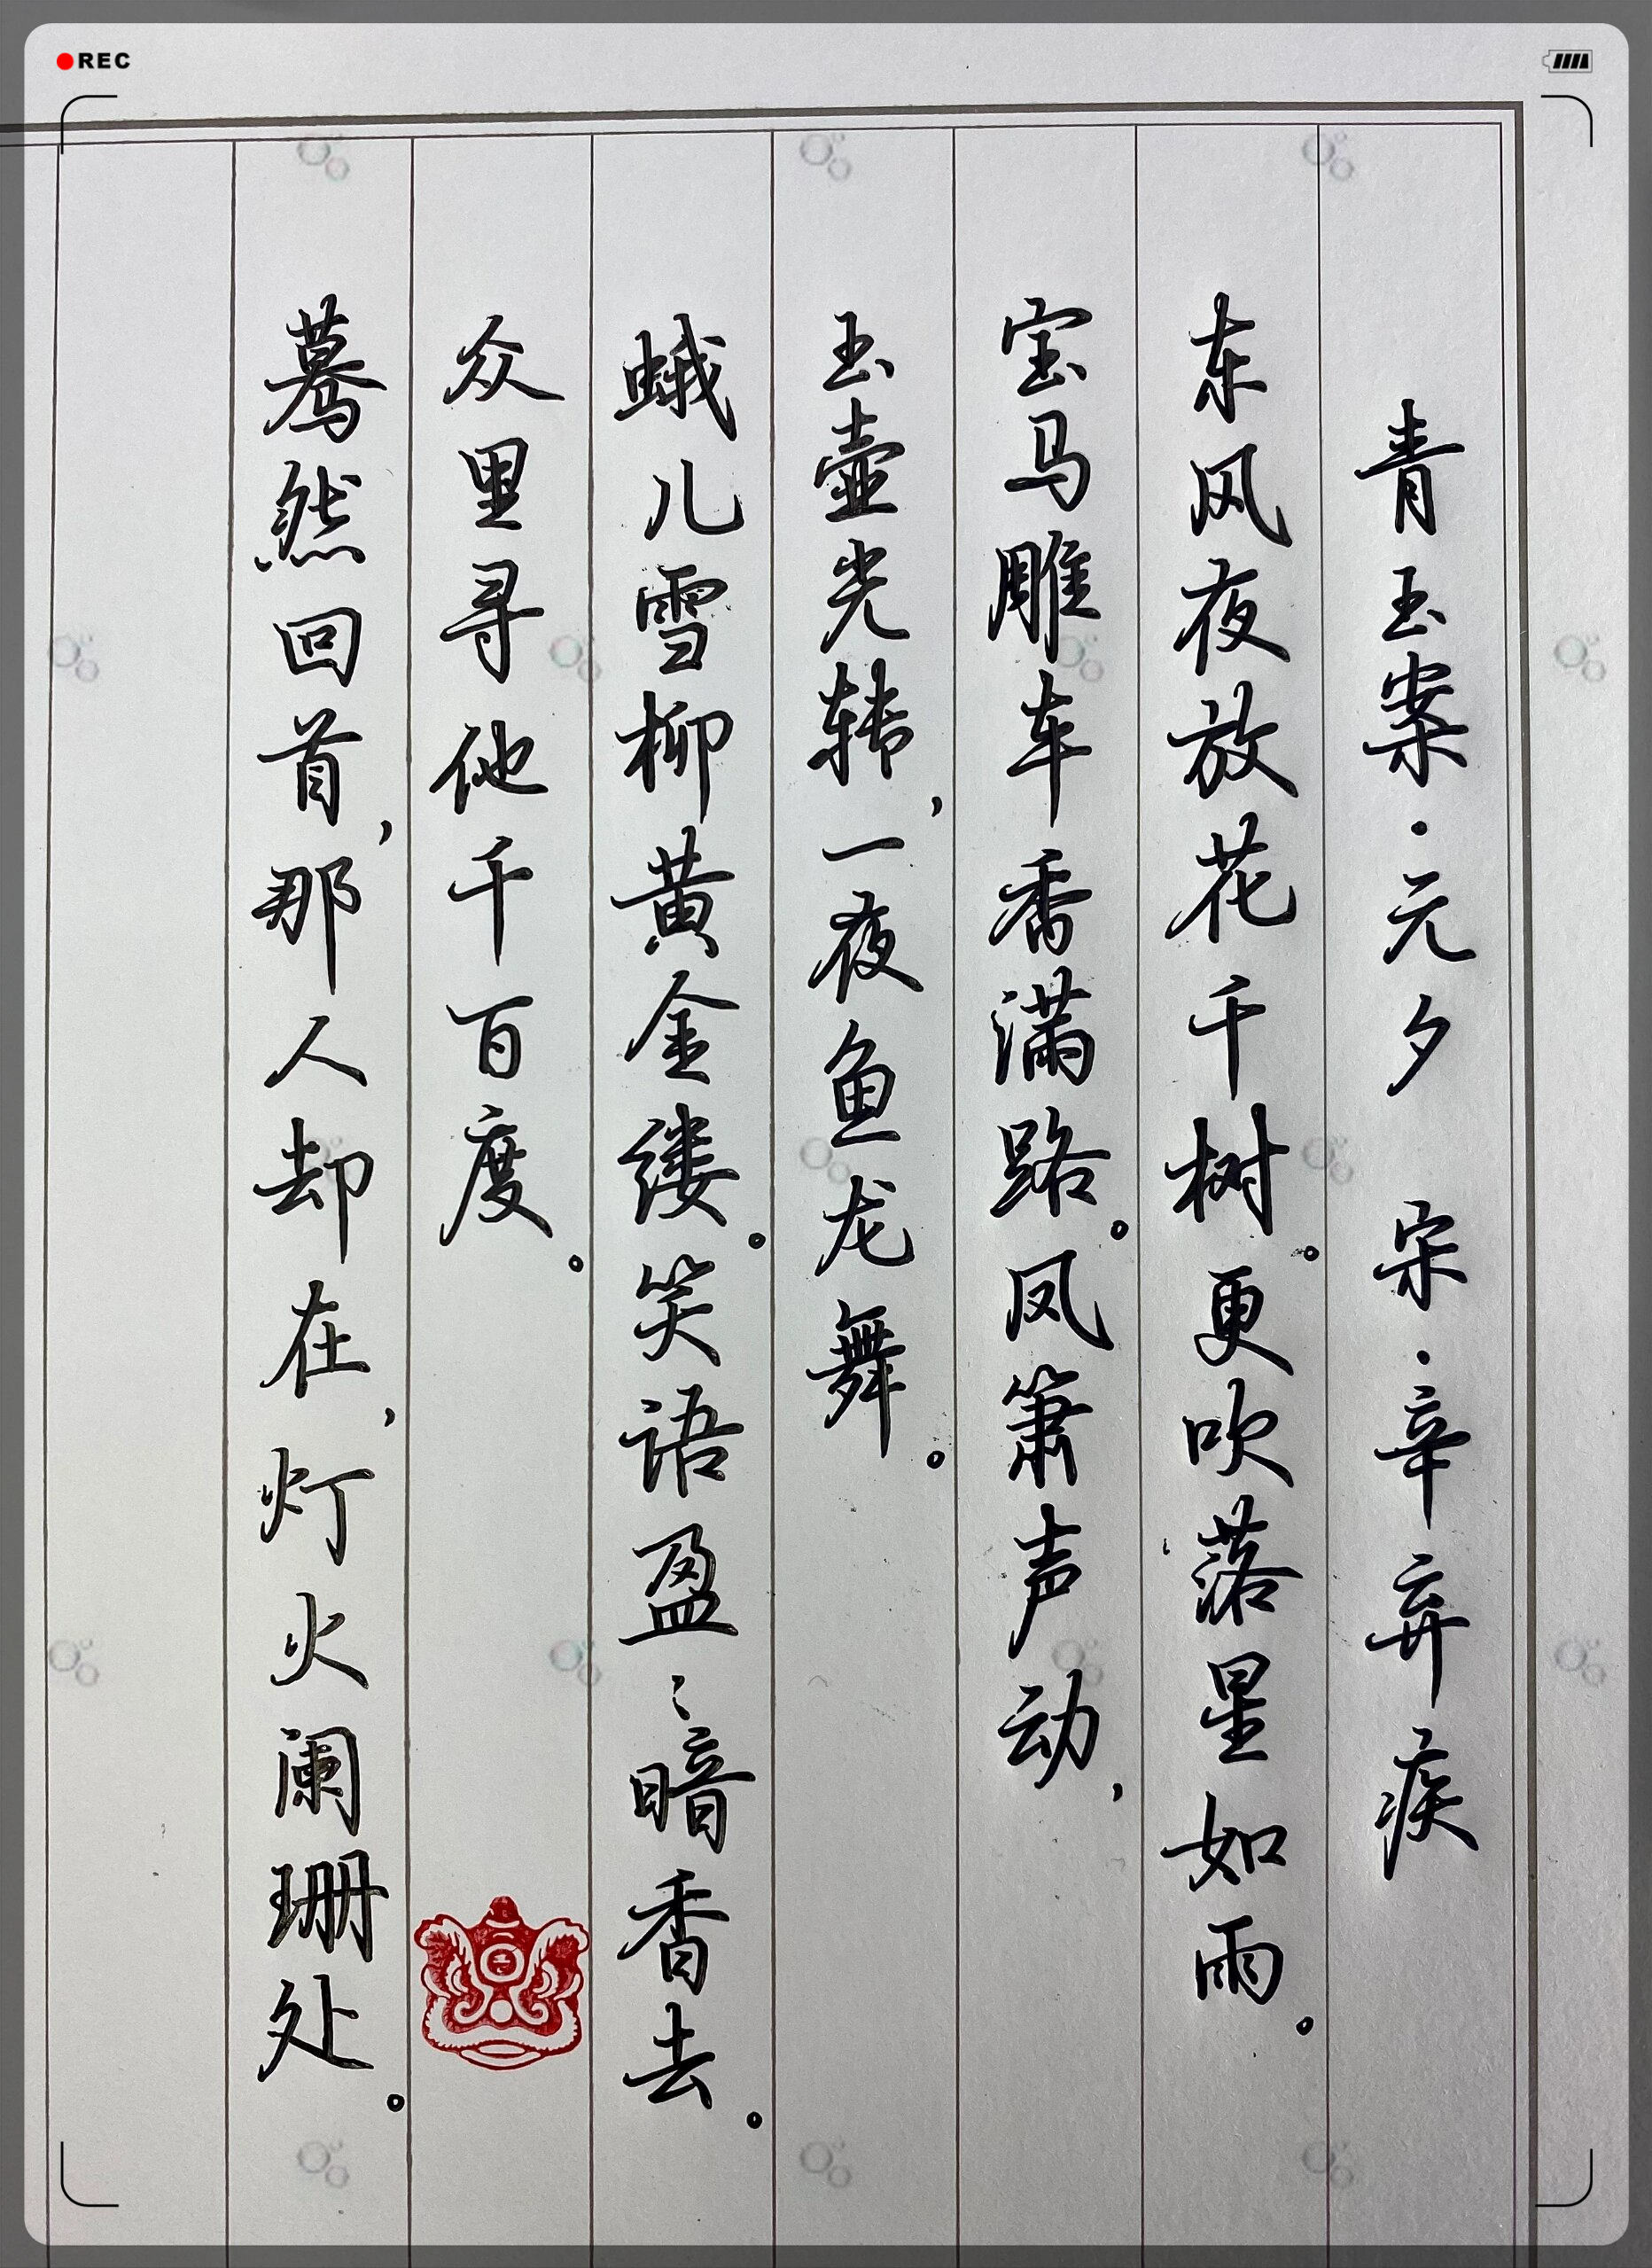 REC
青玉案·元夕 宋·辛弃疾
东风夜放花千树。更吹落星如雨。
宝马雕车香满路。凤箫声动,
玉壶光转,一夜鱼龙舞。
蛾儿雪柳黄金缕。笑语盈〻暗香去。
众里寻他千百度。
蓦然回首,那人却在,灯火阑珊处。